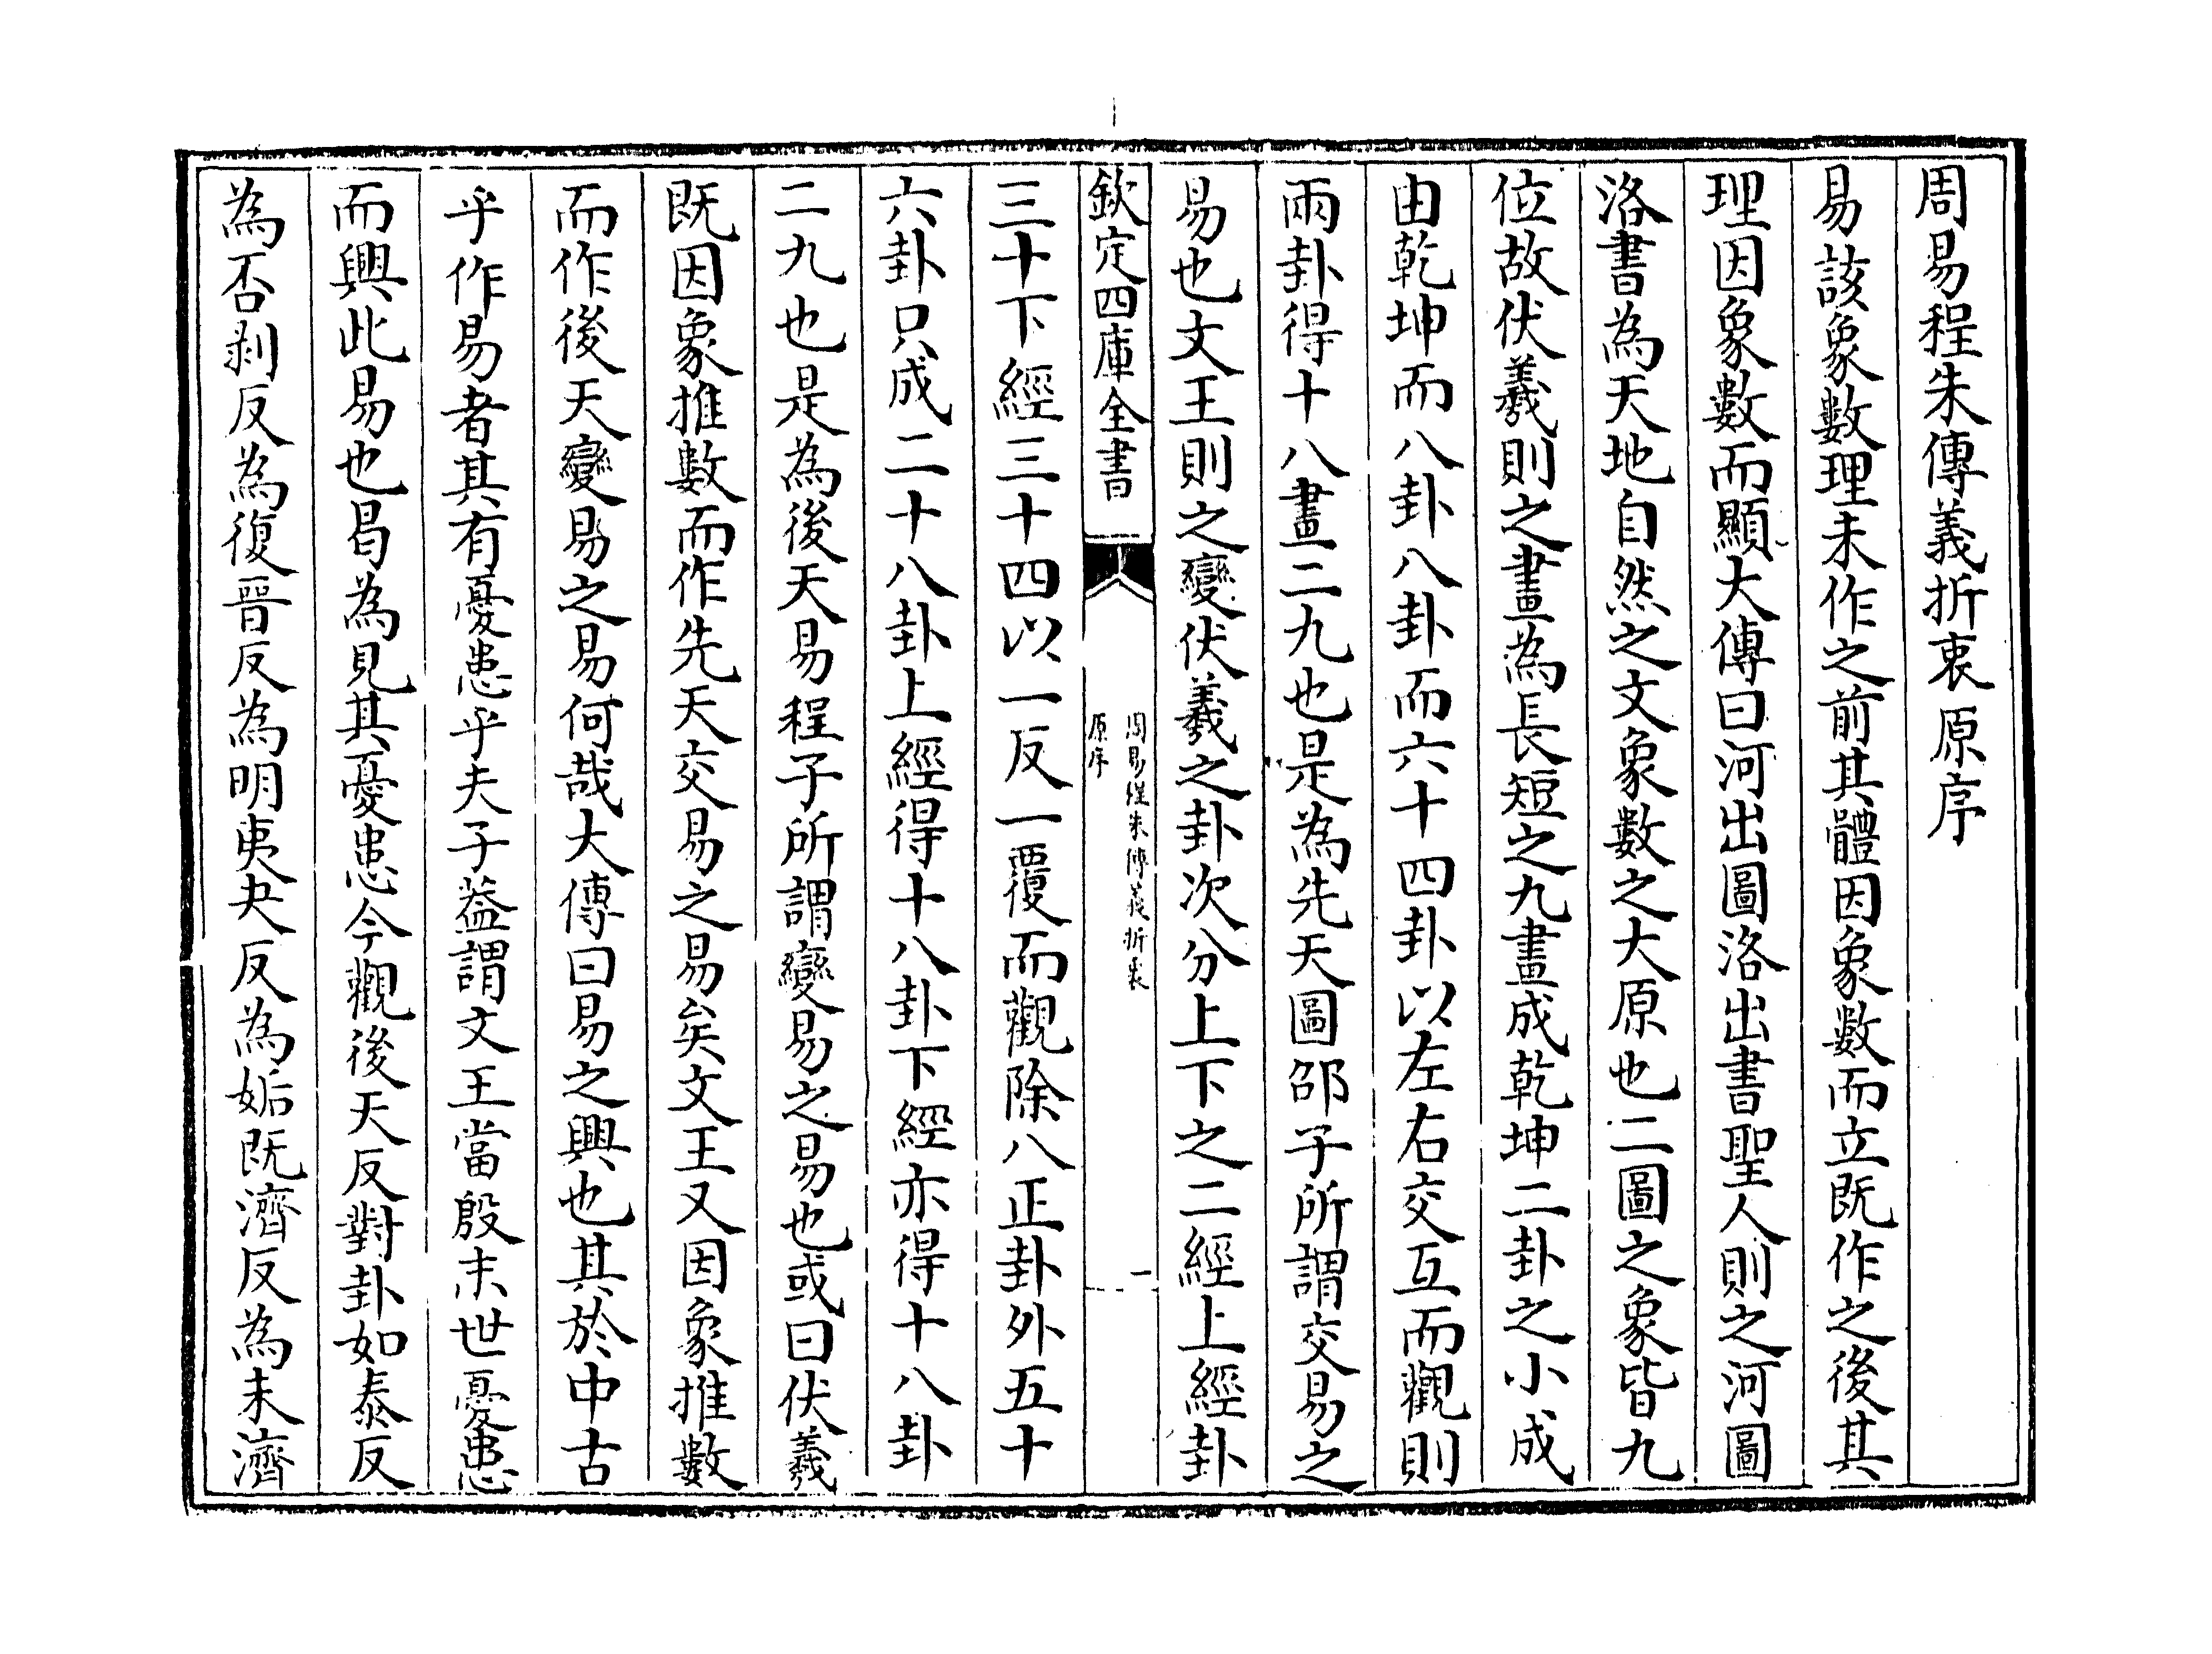 周易程朱傳義折衷原序
易該象數理未作之前其體因象數而立既作之後其
理因象數而顯大傳曰河出圖洛出書聖人則之河圖
洛書為天地自然之文象數之大原也二圖之象皆九
位故伏羲則之畫為長短之九畫成乾坤二卦之小成
由乾坤而八卦八卦而六十四卦以左右交互而觀則
兩卦得十八畫二九也是為先天圖邵子所謂交易之
易也文王則之變伏羲之卦次分上下之二經上經卦
欽定四庫全書
周易程朱傳義折衷
原序
一
三十下經三十四以一反一覆而觀除八正卦外五十
六卦只成二十八卦上經得十八卦下經亦得十八卦
二九也是為後天易程子所謂變易之易也或曰伏羲
既因象推數而作先天交易之易矣文王又因象推數
而作後天變易之易何哉大傳曰易之興也其於中古
乎作易者其有憂患乎夫子葢謂文王當殷末世憂患
而興此易也曷為見其憂患今觀後天反對卦如泰反
為否剥反為復晉反為明夷夬反為姤既濟反為未濟